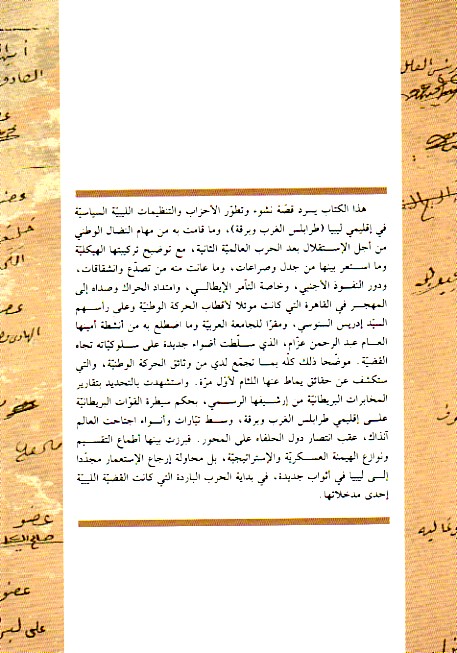 هذا الكتاب يسرد قصّة نشوء وتطوّر الأحزاب والتنظيمات الليبيّة السياسيّة
في إقليمي ليبيا (طرابلس الغرب وبرقة)، وما قامت به من مهام النضال الوطني
من أجل الإستقلال بعد الحرب العالميّة الثانية، مع توضيح تركيبتها الهيكليّة
وما استعر بينها من جدل وصراعات، وما عانت منه من تصدّع وانشقاقات،
ودور النفوذ الأجنبي، وخاصة التآمر الإيطالي، وامتداد الحراك وصداه إلى
المهجر في القاهرة التي كانت موئلا لأقطاب الحركة الوطنيّة وعلى رأسهم
السيّد إدريس السنوسي، ومقرّا للجامعة العربيّة وما اضطلع به من أنشطة أمينها
العام عبد الرحمن عزّام، الذي سلّطت أضواء جديدة على سلوكيّاته تجاه
القضيّة. موضّحا ذلك كلّه بما تجمّع لدي من وثائق الحركة الوطنيّة، والتي
ستكشف عن حقائق يماط عنها اللثام لأوّل مرّة. واستشهدت بالتحديد بتقارير
المخابرات البريطانيّة من إرشيفها الرسمي، بحكم سيطرة القوّات البريطانيّة
على إقليمي طرابلس الغرب وبرقة، وسط تيّارات وأنواء اجتاحت العالم
آنذاك، عقب انتصار دول الحلفاء على المحور. فبرزت بينها أطماع التقسيم
ونوازع الهيمنة العسكريّة والإستراتيجيّة، بل محاولة إرجاع الإستعمار مجدّدا
إلى ليبيا في أثواب جديدة، في بداية الحرب الباردة التي كانت القضيّة الليبيّة
إحدى مدخلاتها.
عضو
عضو